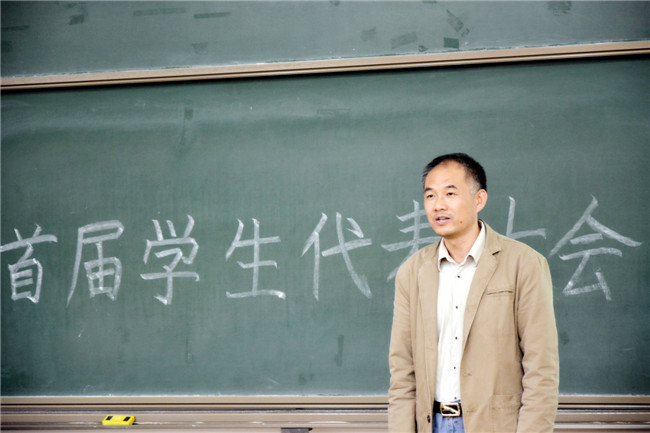 首届学生代表大会